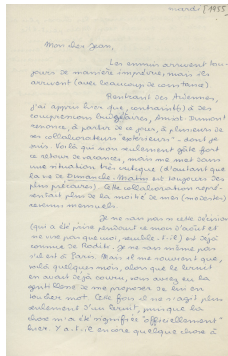 mardi / 1955
Mon cher Jean,
Les ennuis arrivent tou-
jours de manière imprévue, mais ils
arrivent (avec beaucoup de constance)
Rentrant des Ardennes,
j'ai appris hier que, contraint(e) à des
compressions budgétaires, Dumont
renonce, à partir de ce jour, à plusieurs de
ses collaborateurs extérieurs - dont je
suis. Voilà qui non seulement gâte fort
ce retour de vacances, mais me met dans
une situation très critique (d'autant que
la vie de Dimanche-Matin est toujours des
plus précaires). Cette collaboration repré-
sentait plus de la moitié de mes (modestes)
revenus mensuels.
Je ne sais pas si cette décision
(qui a été prise pendant le mois d'août et
ne vise pas que moi, semble-t-il) est déjà
connue de Je ne sais même pas
s'il est à Paris. Mais il me souvient que,
voilà quelques mois, alors que le bruit
en avait déjà couru, vous aviez eu la
gentillesse de me proposer de lui en
toucher mot. Cette fois il ne s'agit plus
seulement d'un bruit, puisque la
chose m'a été signifiée "officiellement"
hier. Y a-t-il encore quelque chose à